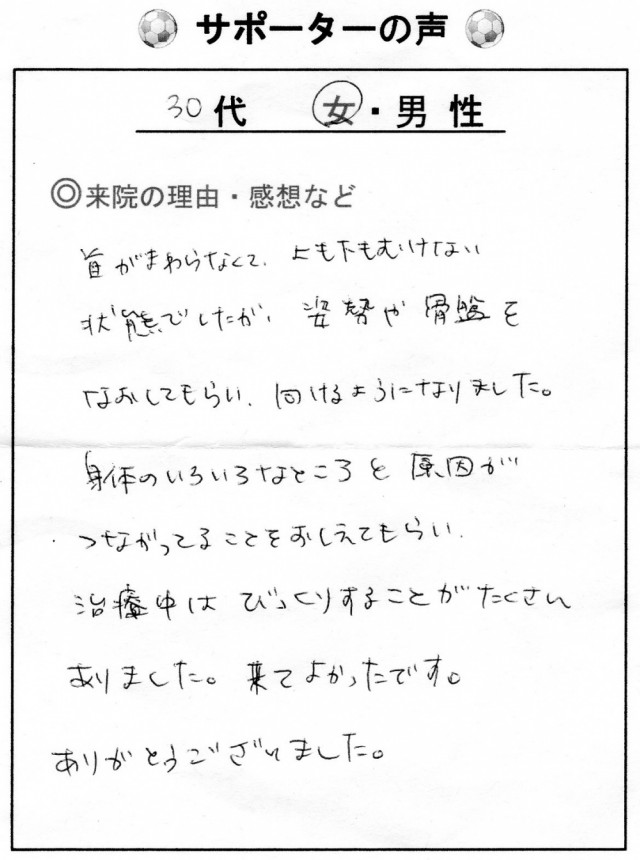 サポーターの声
30代 女・男性
◎来院の理由・感想など
首がまわらなくて、上も下もむけない
状態でしたが、姿勢や骨盤を
なおしてもらい、向けるようになりました。
身体のいろいろなところと原因が
つながってることをおしえてもらい、
治療中はびっくりすることがたくさん
ありました。来てよかったです。
ありがとうございました。